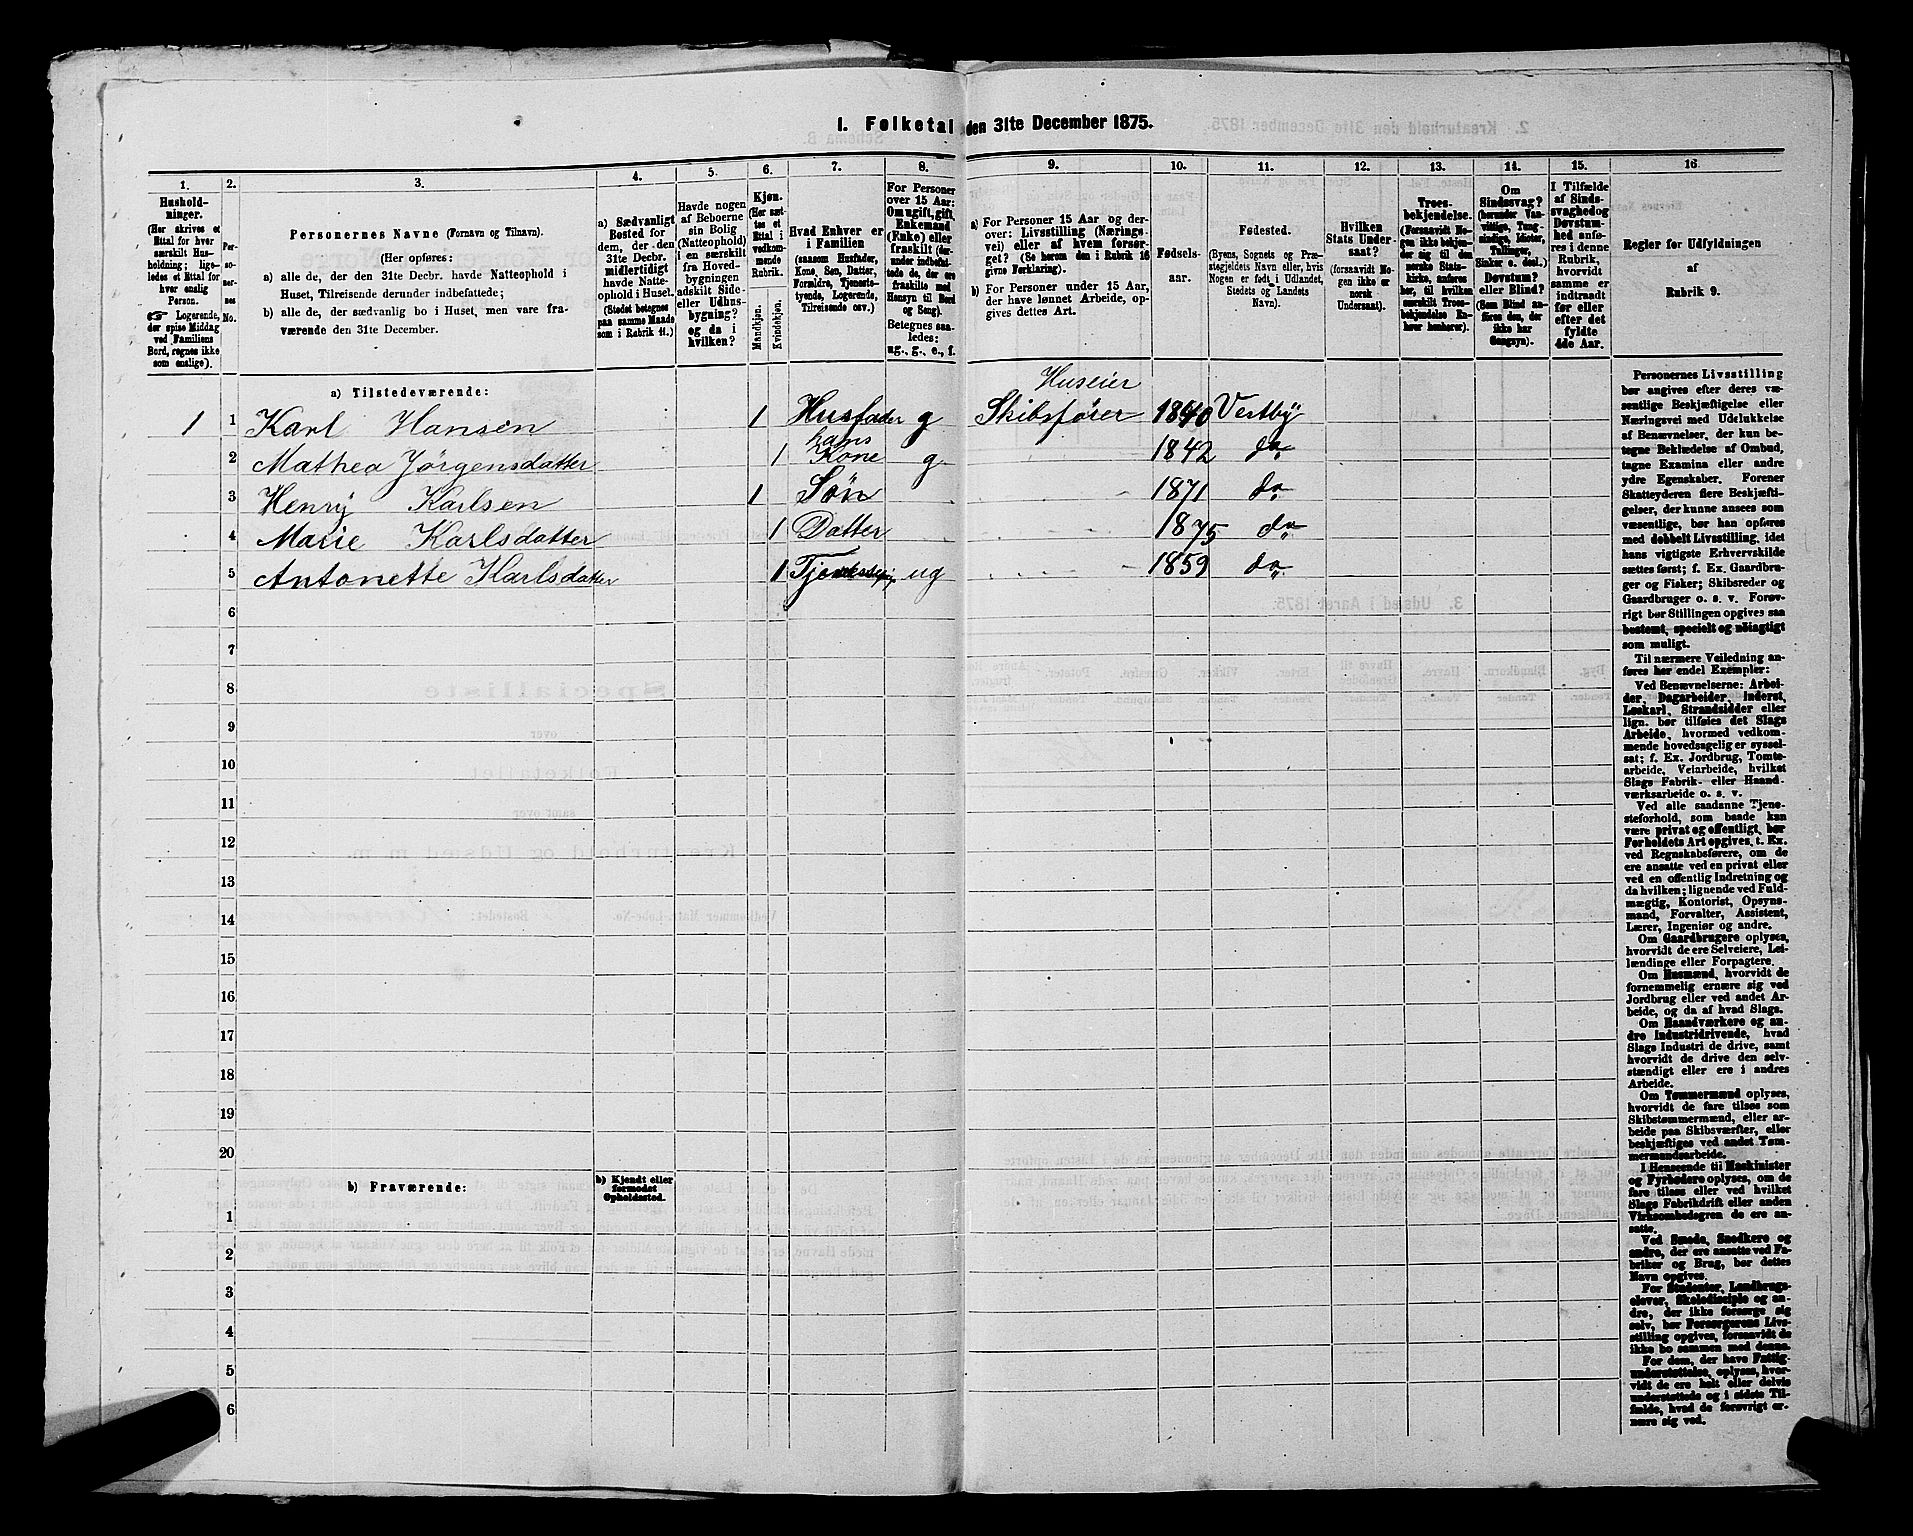 I. Folketal den 31te December 1875.
1.
2.
3.
4.
5.
6.
7.
8.
9.
10.
11.
12.
13.
14.
15.
16
Hushold-
ninger.
(Her skrives et
Ettal for hver
særskilt Hus-
holdning; lige-
ledes et Ettal for
hver enslig
Person.
☞ Logerende,
der spise Middag
ved Familiens
Bord, regnes ikke
som enslige).
Per-
so-
ner-
nes
No.
Personernes Navne (Fornavn og Tilnavn).
(Her opføres:
a) alle de, der den 31te Decbr. havde Natteophold i
Huset, Tilreisende derunder indbefattede;
b) alle de, der sædvanlig bo i Huset, men vare fra-
værende den 31te December.
a) Sædvanligt
Bosted for
dem, der den
31te Decbr.
midlertidigt
havde Natte-
ophold i Huset.
(Stedet betegnes
paa samme Maade
som i Rubrik 11.)
Havde nogen
af Beboerne
sin Bolig
(Natteophold)
i en særskilt
fra Hoved-
bygningen
adskilt Side-
eller Udhus-
bygning?
og da i
hvilken?
Kjøn.
(Her sæt-
tes et
Ettal i
vedkom-
mende
Rubrik.
Mandkjøn.
Kvindekjøn.
Hvad Enhver er
i Familien
(saasom Husfader,
Kone, Søn, Datter,
Forældre, Tjeneste-
tyende, Logerende,
Tilreisende osv.)
For Personer
over 15 Aar:
Om ugift, gift,
Enkemand
(Enke) eller
fraskilt (der-
under indbefat-
tede de, der ere
fraskilte med
Hensyn til Bord
og Seng).
Betegnes saa-
ledes:
ug., g., e., f.
a) For Personer 15 Aar og der-
over: Livsstilling (Nærings-
vei) eller af hvem forsør-
get? (Se herom den i Rubrik 16
givne Forklaring).
b) For Personer under 15 Aar,
der have lønnet Arbeide, op-
gives dettes Art.
Fødsels-
aar.
Fødested.
(Byens, Sognets og Præ-
stegjeldets Navn eller, hvis
Nogen er født i Udlandet,
Stedets og Landets
Navn).
Hvilken
Stats Under-
saat?
(forsaavidt No-
gen ikke er
norsk
Undersaat).
Troes-
bekjendelse.
(Forsaavidt No-
gen ikke bekjen-
der sig til den
norske Stats-
kirke, anføres
her, til hvilken
særskilt Troes-
bekjendelse En-
hver henhører).
Om
Sindssvag?
(herunder Van-
vittige, Tung-
sindige, Idioter,
Tullinger,
Sinker o. desl.)
Døvstum?
eller Blind?
(Som Blind an-
føres den, der
ikke har
Gangsyn).
I Tilfælde
af Sinds-
svaghed og
Døvstum-
hed anfø-
res i denne
Rubrik,
hvorvidt
samme er
indtraadt
før eller
efter det
fyldte
4de Aar.
Regler for Udfyldningen
af
Rubrik 9.
a) Tilstedeværende:
Huseier
1 1 Karl Hansen 1 Husfader g Skibsfører 1840 Vestby
hans
2 Mathea Jørgensdatter 1 Kone g 1842 do
3 Henry Karlsen 1 Søn 1871 do
4 Marie Karlsdatter 1 Datter 1875 do
5 Antonette Karlsdatter 1 ug 1859 do
6
7
8
9
10
11
12
13
14
15
16
17
18
19
20
b) Fraværende:
b) Kjendt eller
formodet
Opholdssted.
1
2
3
4
5
6
Personernes Livsstilling
bør angives efter deres væ-
sentlige Beskjæftigelse eller
Næringsvei med Udelukkelse
af Benævnelser, der kun be-
tegne Beklædelse af Ombud,
tagne Examina eller andre
ydre Egenskaber. Forener
Skatteyderen flere Beskjæfti-
gelser, der kunne ansees som
væsentlige, bør han opføres
med dobbelt Livsstilling, idet
hans vigtigste Erhvervskilde
sættes først; f. Ex. Gaardbru-
ger og Fisker; Skibsreder og
Gaardbruger o. s. v. Forøv-
rigt bør Stillingen opgives saa
bestemt, specielt og nøiagtigt
som muligt.
Til nærmere Veiledning an-
føres her endel Exempler:
Ved Benævnelserne: Arbei-
der, Dagarbeider, Inderst,
Løskarl, Strandsidder eller
lign. bør tilføies det Slags
Arbeide, hvormed vedkom-
mende hovedsagelig er syssel-
sat; f. Ex. Jordbrug, Tomte-
arbeide, Veiarbeide, hvilket
Slags Fabrik- eller Haand-
værksarbeide o. s. v.
Ved alle saadanne Tjene-
steforhold, som baade kan
være privat og offentligt, bør
Forholdets Art opgives, t. Ex.
ved Regnskabsførere, om de
ere ansatte ved en privat eller
ved en offentlig Indretning og
da hvilken; lignende ved Fuld-
mægtig, Kontorist, Opsyns-
mand, Forvalter, Assistent,
Lærer, Ingeniør og andre.
Om Gaardbrugere oplyses,
hvorvidt de ere Selveiere, Lei-
lændinge eller Forpagtere.
Om Husmænd, hvorvidt de
fornemmelig ernære sig ved
Jordbrug eller ved andet Ar-
beide, og da af hvad Slags.
Om Haandværkere og an-
dre Industridrivende, hvad
Slags Industri de drive, samt
hvorvidt de drive den selv-
stændigt eller ere i andres
Arbeide.
Om Tømmermænd oplyses,
hvorvidt de fare tilsøs som
Skibstømmermænd, eller ar-
beide paa Skibsværfter, eller
beskjæftiges ved andet Tøm-
mermandsarbeide.
I Henseende til Maskinister
og Fyrbødere oplyses, om de
fare tilsøs eller ved hvilket
Slags Fabrikdrift eller anden
Virksomhedsgren de ere an-
satte.
Ved Smede, Snedkere og
andre, der ere ansatte ved Fa-
briker og Brug, bør dettes
Navn opgives.
For Studenter, Landbrugs-
elever, Skoledisciple og an-
dre, der ikke forsørge sig
selv, bør Forsørgerens Livs-
stilling opgives, forsaavidt de
ikke bo sammen med denne.
For dem, der have Fattig-
understøttelse, oplyses, hvor-
vidt de ere helt eller delvis
understøttede og i sidste Til-
fælde, hvad de forøvrigt er-
nære sig ved.